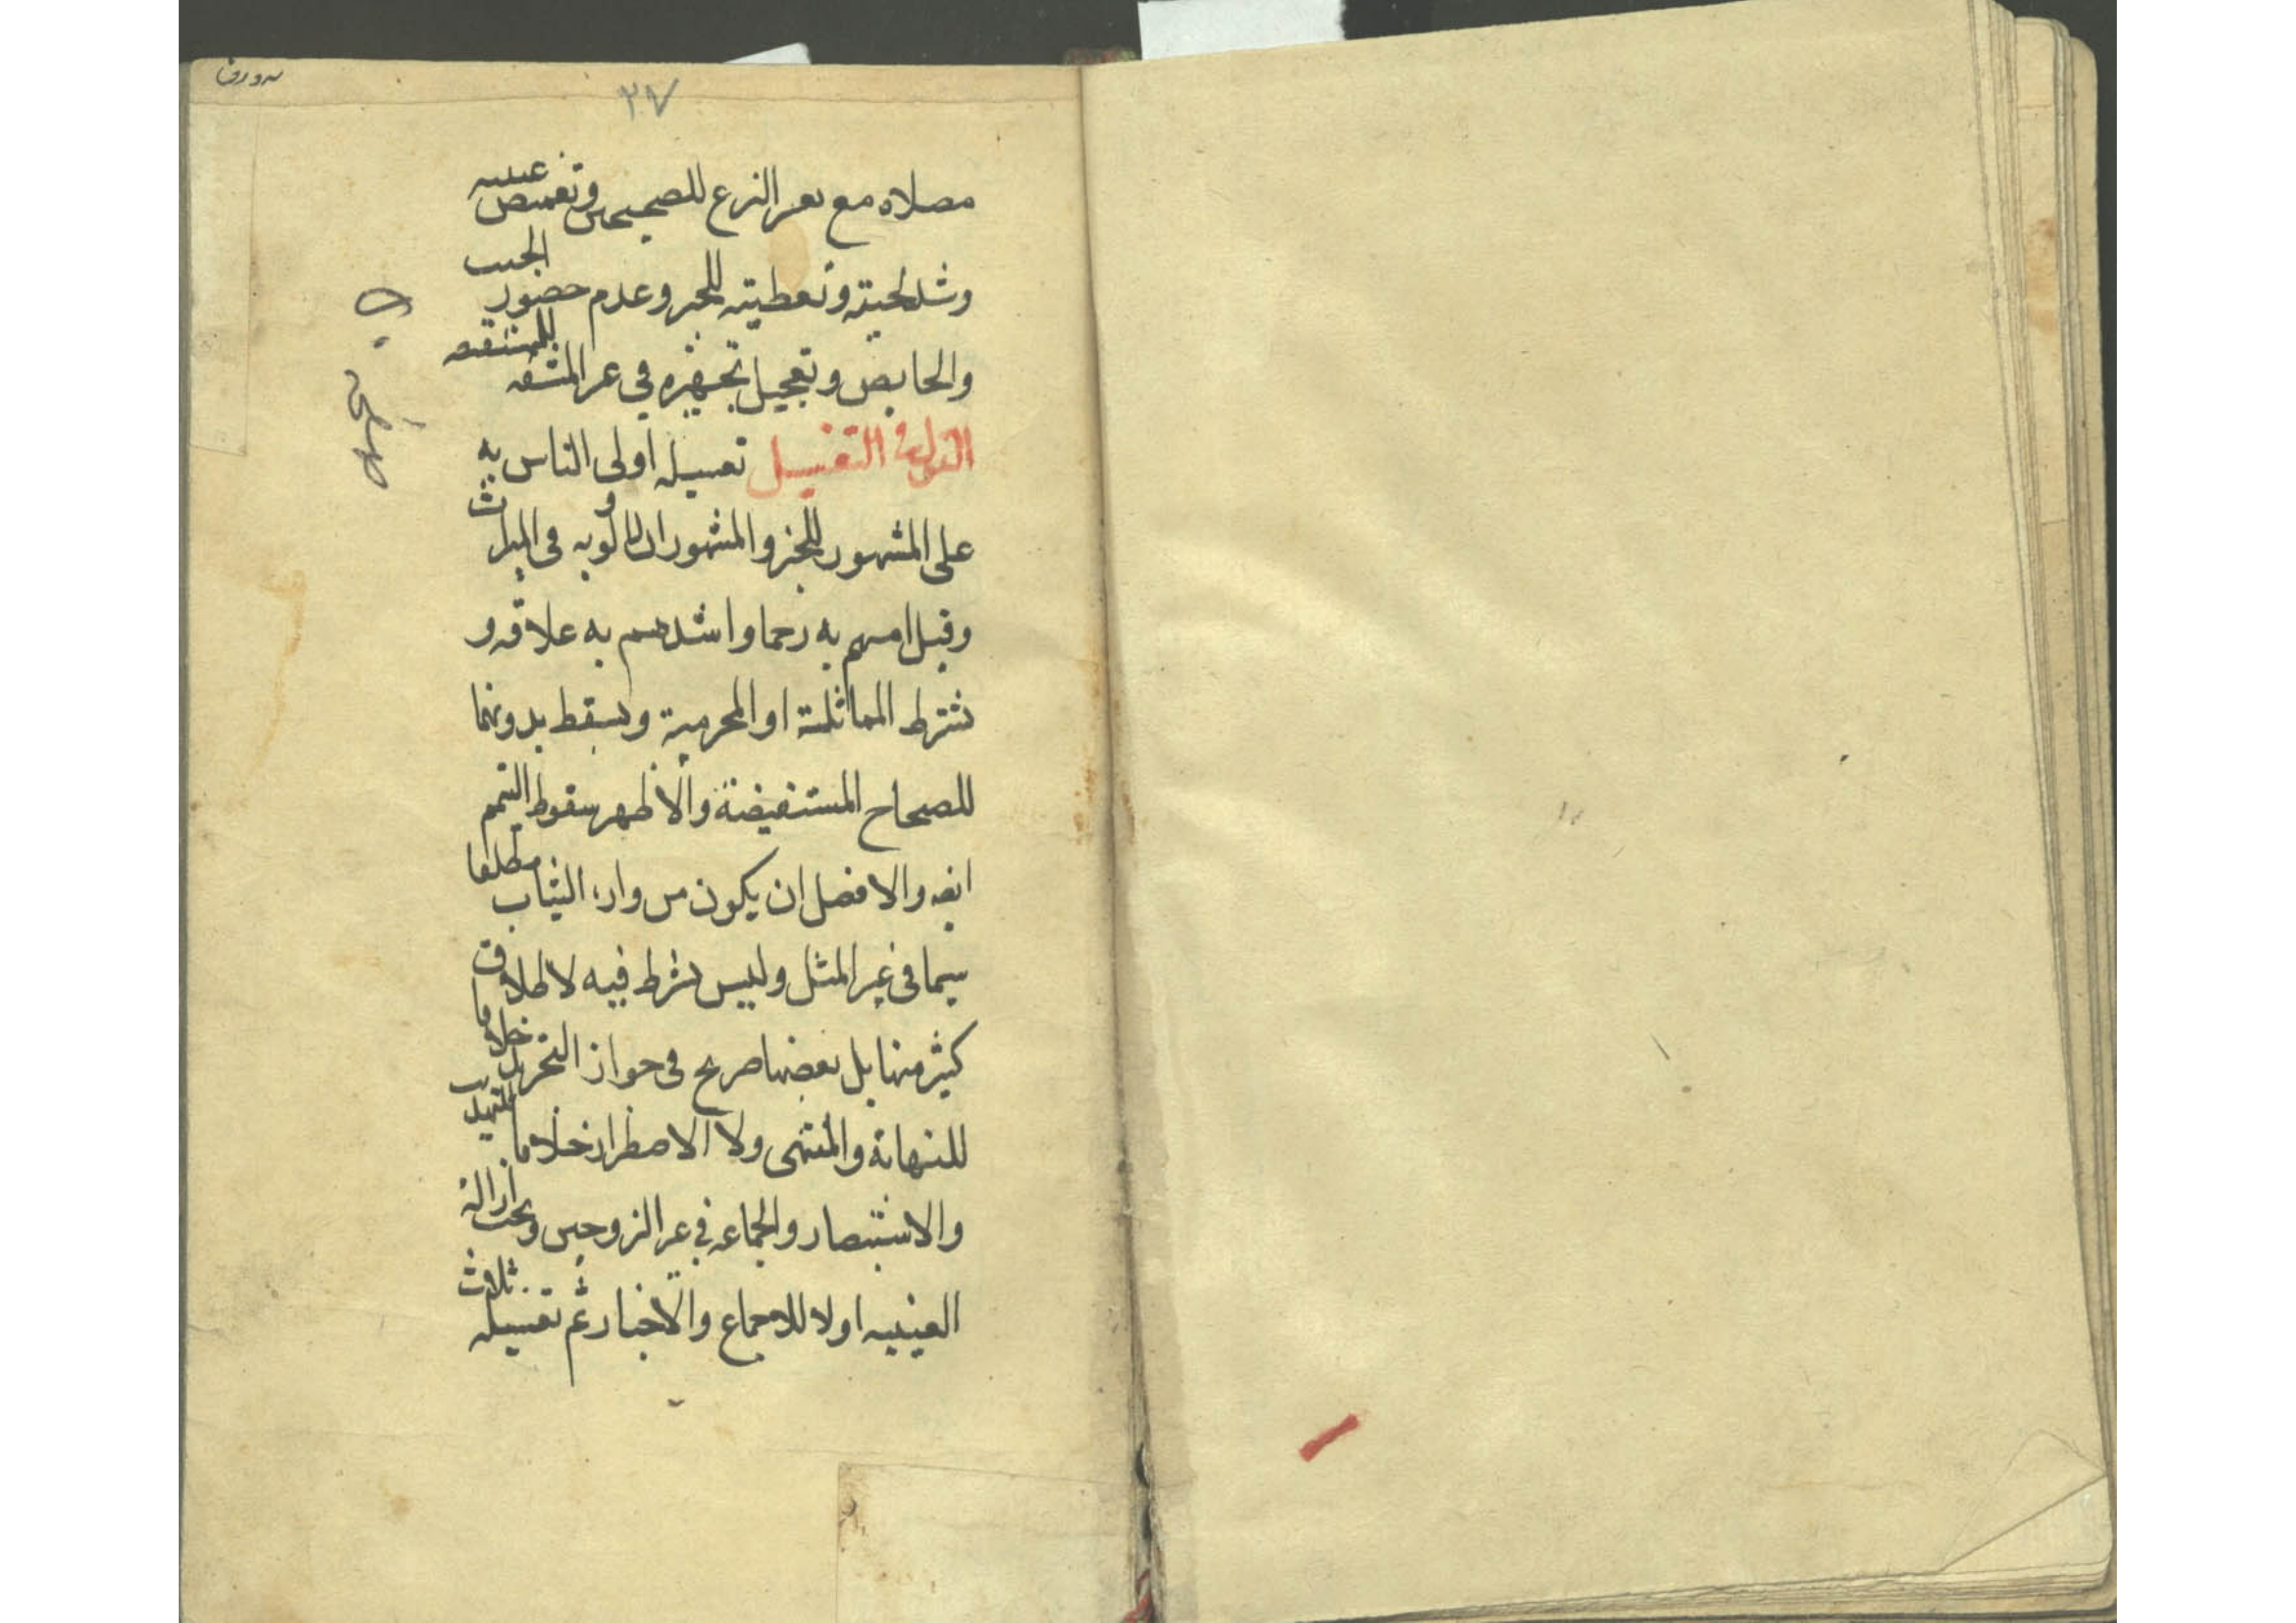 ٢٧
مصلاه مع تعسر النزع للصحيحين وتغميض عينيه
وشد لحيته وتغطيته للخبر وعدم حضور الجنب
والحايض وتعجيل تجهيزه في غير المشتبه للمستفيضه
القول في التغسيل تغسيله اولى الناس به
على المشهور للخبر والمشهور انه الاولى به في الميراث
وقيل امسهم به رحما واشدهم به علاقه و
يشترط المماثلة او المحرمية ويسقط بدونهما
للصحاح المستفيضة والاظهر سقوط التيمم
ايضه والافضل ان يكون من وراء الثياب مطلقا
سيما في غير المثل وليس بشرط فيه لاطلاق
كثير منها بل بعضها صريح في جواز التجريد خلافا
للنهاية والمنتهى ولا الاضطرار خلافا للتهذيب
والاستبصار والجماعه في غير الزوجين ويجب ازالة
العينيه اولا للاجماع والاخبار ثم تغسيله ثلاث